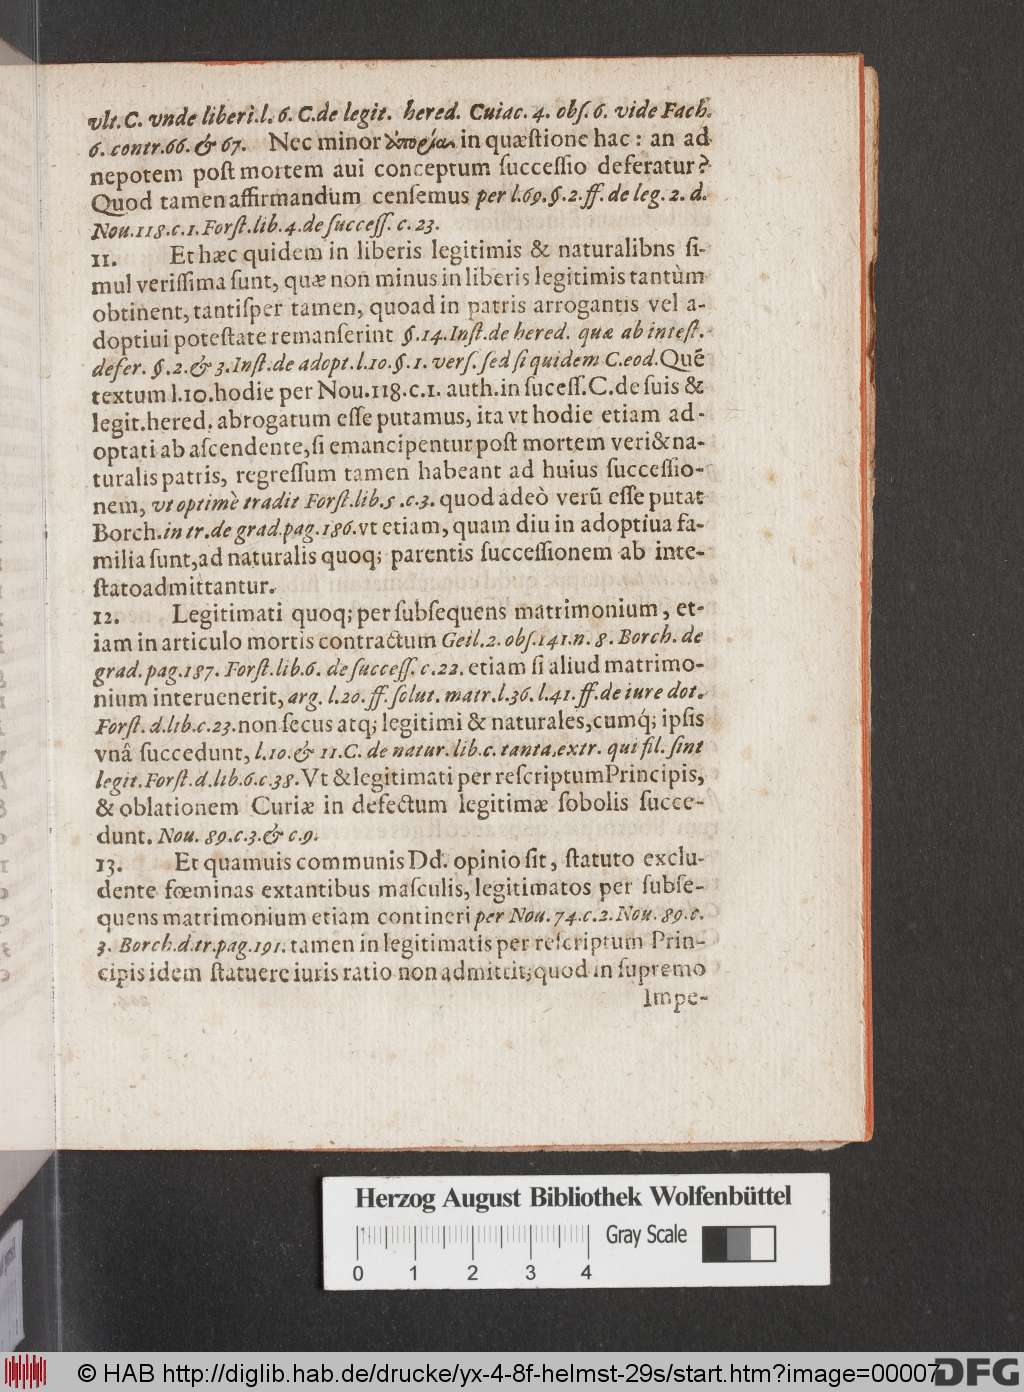 vlt. C. vnde liberi. l. 6. C. de legit. hered. Cuiac. 4. obſ. 6. vide Fach.
6. contr. 66. & 67. Nec minor ἀπορία in quæſtione hac: an ad
nepotem poſt mortem aui conceptum ſucceſſio deferatur?
Quod tamen affirmandum cenſemus per l. 69. §. 2. ff. de leg. 2. d.
Nou. 118. c. 1. Forſt. lib. 4. de ſucceſſ. c. 23.
11. Et hæc quidem in liberis legitimis & naturalibns ſi-
mul veriſſima ſunt, quæ non minus in liberis legitimis tantùm
obtinent, tantiſper tamen, quoad in patris arrogantis vel a-
doptiui poteſtate remanſerint §. 14. Inſt. de hered. quæ ab inteſt.
defer. §. 2. & 3. Inſt. de adopt. l. 10. §. 1. verſ. ſed ſi quidem C. eod. Quē
textum l. 10. hodie per Nou. 118. c. 1. auth. in ſuceſſ. C. de ſuis &
legit. hered. abrogatum eſſe putamus, ita vt hodie etiam ad-
optati ab aſcendente, ſi emancipentur poſt mortem veri & na-
turalis patris, regreſſum tamen habeant ad huius ſucceſſio-
nem, vt optimè tradit Forſt. lib. 5. c. 3. quod adeò verũ eſſe putat
Borch. in tr. de grad. pag. 186. vt etiam, quam diu in adoptiua fa-
milia ſunt, ad naturalis quoq; parentis ſucceſſionem ab inte-
ſtato admittantur.
12. Legitimati quoq; per ſubſequens matrimonium, et-
iam in articulo mortis contractum Geil. 2. obſ. 141. n. 8. Borch. de
grad. pag. 187. Forſt. lib. 6. de ſucceſſ. c. 22. etiam ſi aliud matrimo-
nium interuenerit, arg. l. 20. ff. ſolut. matr. l. 36. l. 41. ff. de iure dot.
Forſt. d. lib. c. 23. non ſecus atq; legitimi & naturales, cumq́; ipſis
vnâ ſuccedunt, l. 10. & 11. C. de natur. lib. c. tanta, extr. qui fil. ſint
legit. Forſt. d. lib. 6. c. 38. Vt & legitimati per reſcriptum Principis,
& oblationem Curiæ in defectum legitimæ ſobolis ſucce-
dunt. Nou. 89. c. 3. & c. 9.
13. Et quamuis communis Dd. opinio ſit, ſtatuto exclu-
dente fœminas extantibus maſculis, legitimatos per ſubſe-
quens matrimonium etiam contineri per Nou. 74. c. 2. Nou. 89. c.
3. Borch. d. tr. pag. 191. tamen in legitimatis per reſcriptum Prin-
cipis idem ſtatuere iuris ratio non admittit; quod in ſupremo
Impe-
Herzog August Bibliothek Wolfenbüttel
Gray Scale
0 1 2 3 4
© HAB http://diglib.hab.de/drucke/yx-4-8f-helmst-29s/start.htm?image=00007
DFG